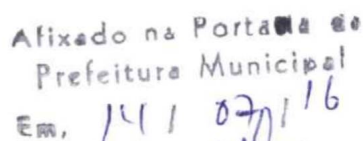 Afixado na Portaria de
Prefeitura Municipal
Em, 14 / 07 / 16